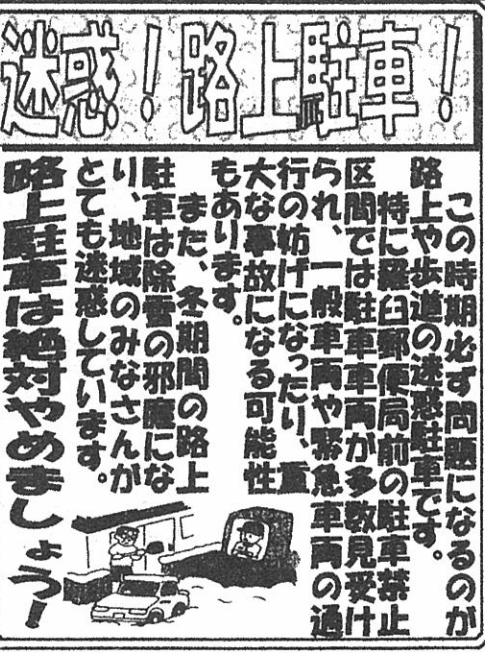 迷惑！路上駐車！
この時期必ず問題になるのが
路上や歩道の迷惑駐車です。
特に羅臼郵便局前の駐車禁止
区間では駐車車両が多数見受け
られ、一般車両や緊急車両の通
行の妨げになったり、重
大な事故になる可能性
もあります。
また、冬期間の路上
駐車は除雪の邪魔にな
り、地域のみなさんが
とても迷惑しています。
路上駐車は絶対やめましょう！